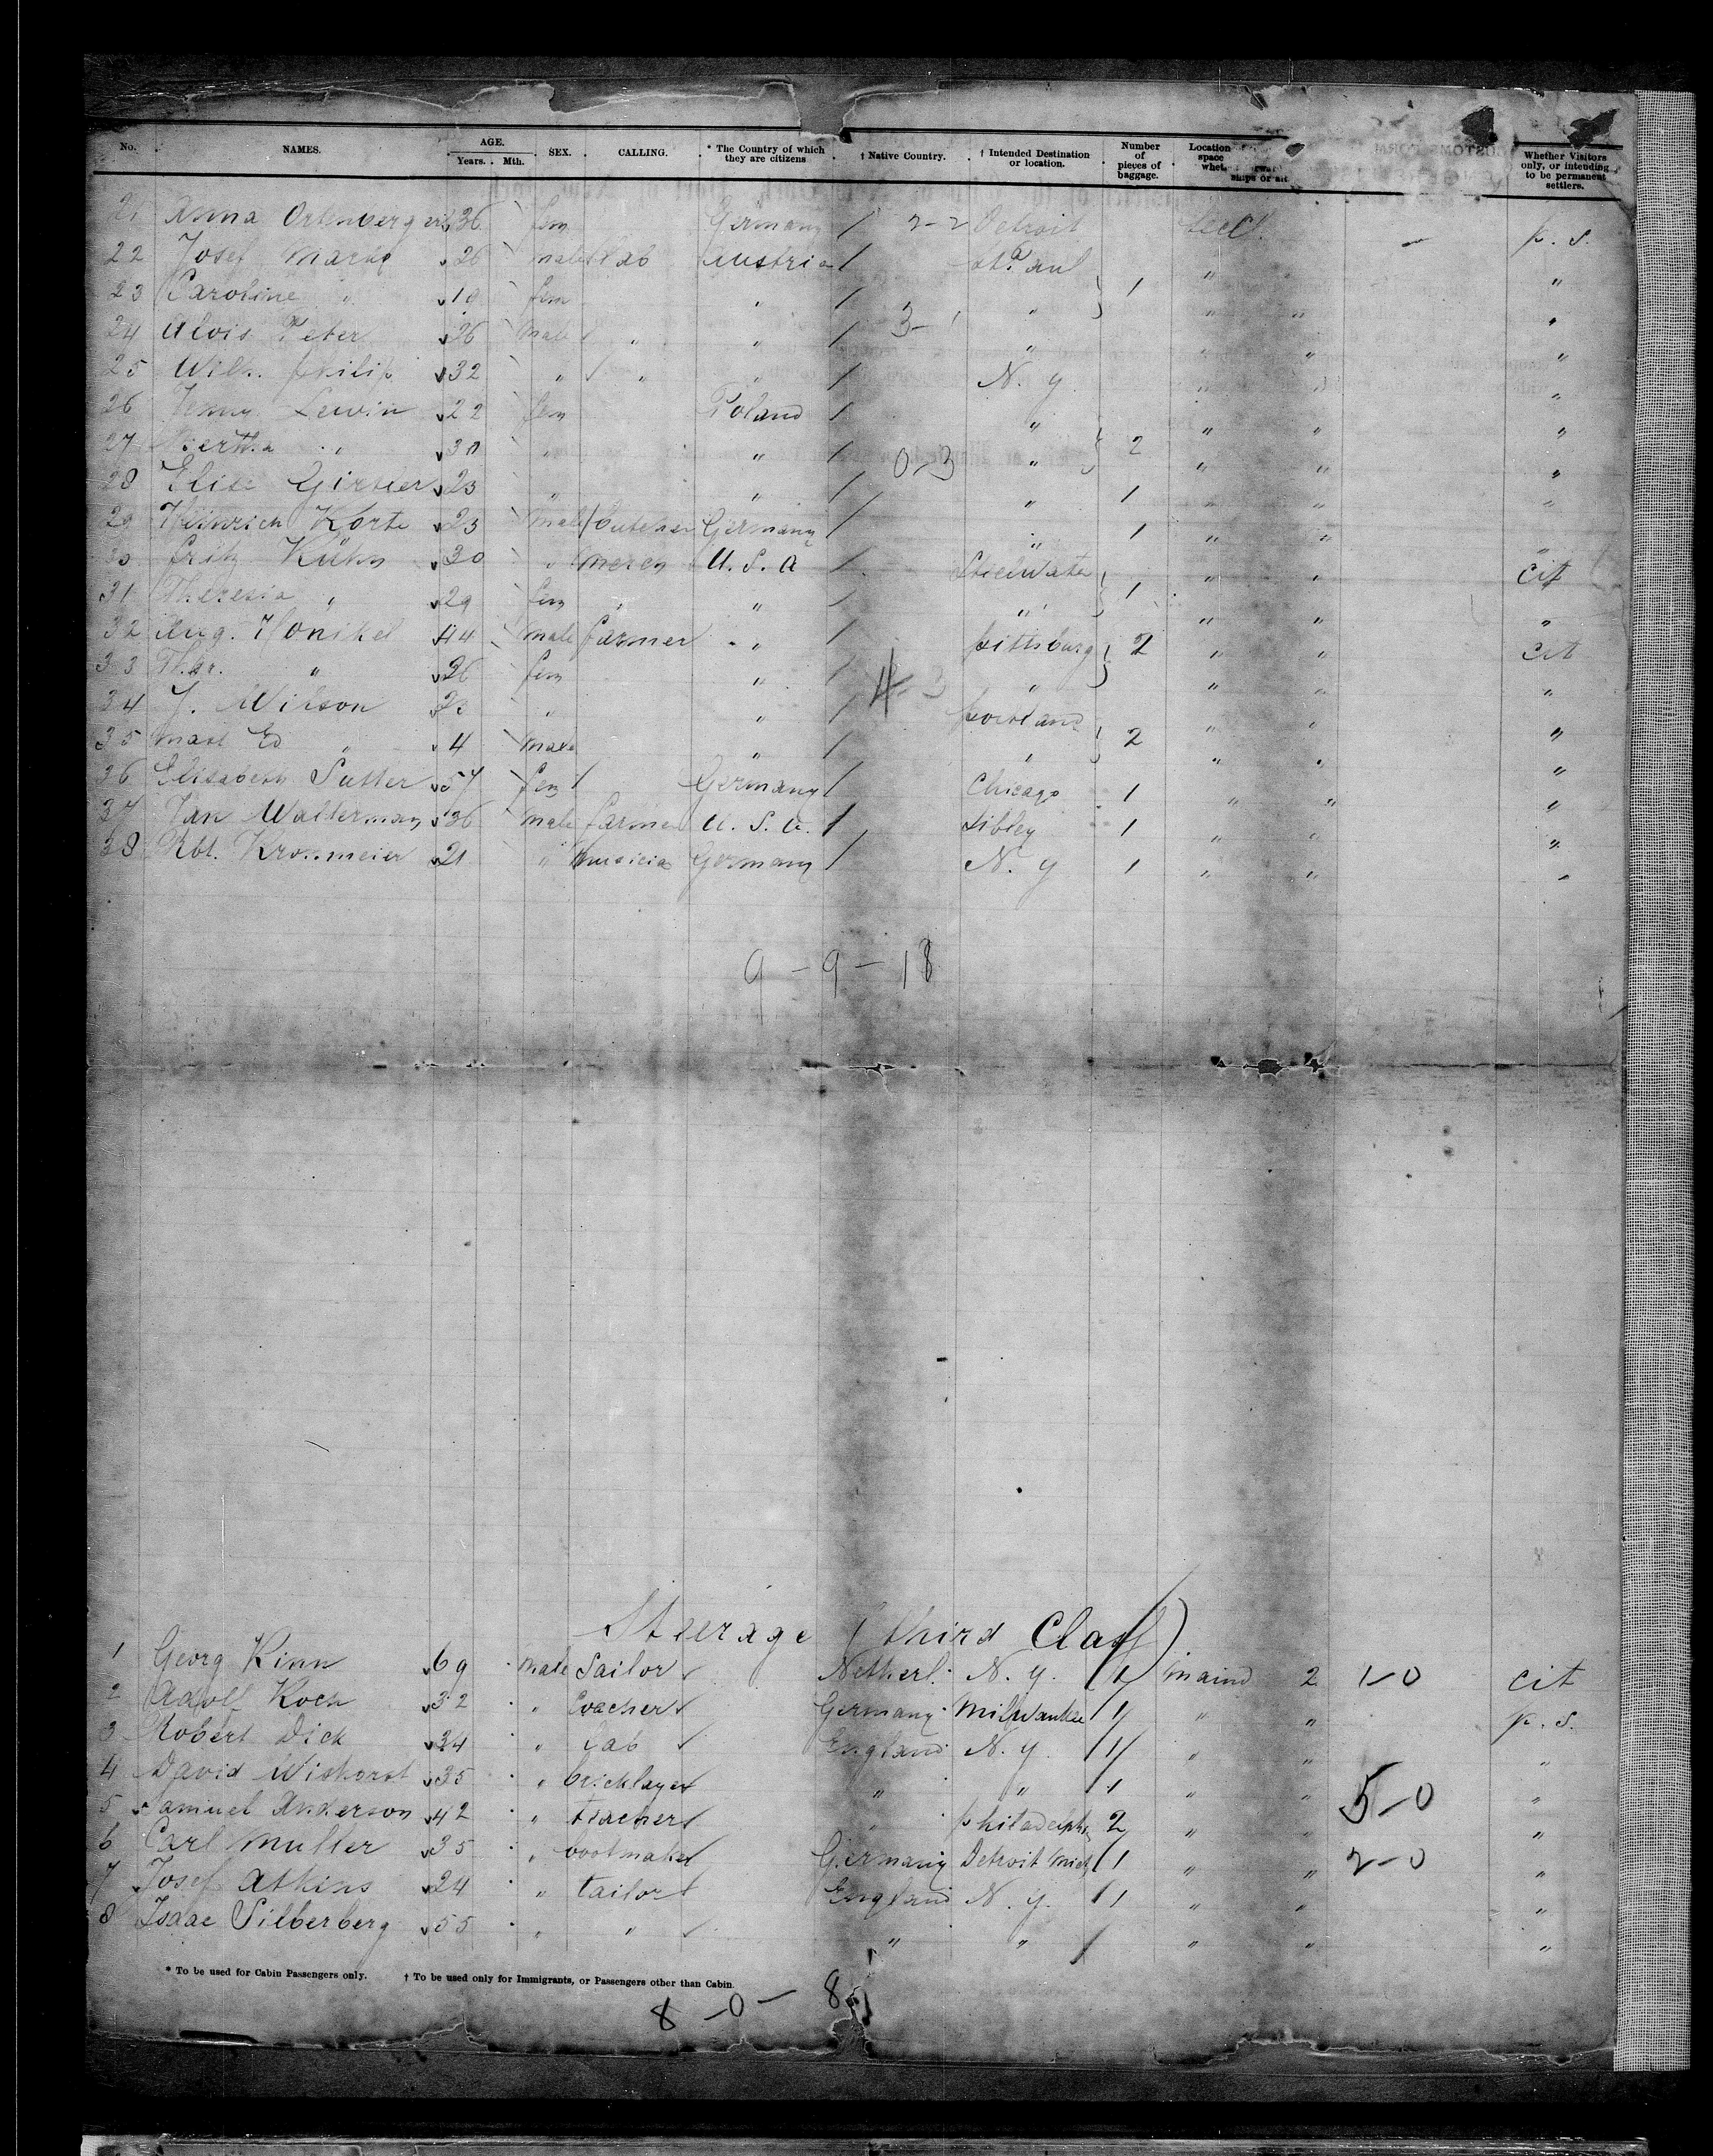 No. NAMES. AGE. Years. Mth. SEX. CALLING. * The Country of which they are citizens † Native Country. † Intended Destination or location. Number of pieces of baggage. Location space Whether Visitors only, or intending to be permanent settlers.
21 Anna 36 fem Germany / 2-2 Detroit p. s.
22 Josef 26 male lab Austria / St. Paul "
23 Caroline " 19 fem " / " 1 " " "
24 Alois Peter 26 male " " / 3-1 " " " "
25 Wilh. Philip 32 " " " / N. Y. " " "
26 Jenny Lewin 22 fem Poland / " " " "
27 Bertha " 30 " " / 0-3 " 2 " " "
28 Elise 23 " " / " 1 " " "
29 Heinrich Korte 23 male butcher Germany / " 1 " " "
30 Fritz Kühn 30 " merch U. S. A / " " cit
31 Theresia " 29 fem " " / " 1 " " "
32 Aug. Honikel 44 male farmer " / Pittsburg 2 " " cit
33 " 26 fem " / 4-3 " " "
34 J. Wilson " " / Portland " " "
35 Ed " 4 male " / " 2 " " "
36 Elisabeth Sutter 57 fem / Germany / Chicago 1 " " "
37 Jan Walterman 36 male farmer U. S. A. / Sibley 1 " " "
38 Rbt. 21 " musician Germany / N. Y 1 " " "
9 - 9 - 18
Steerage (third Class)
1 Georg Kinn 69 male Sailor Netherl. N. Y. 1 2 1-0 cit
2 Adolf Koch 32 " Germany Milwaukee 1 " " p. s.
3 Robert Dick 34 " lab England N. Y. 1 " " "
4 David 35 " bricklayer " " 1 " " 5-0 "
5 Samuel Anderson 42 " teacher " Philadelphia 2 " " "
6 Carl Muller 35 " bootmaker Germany Detroit Mich 1 " " 2-0 "
7 Josef Atkins 24 " tailor England N. Y. 1 " " "
8 Isaac Silberberg 55 " " " " / " " "
* To be used for Cabin Passengers only. † To be used only for Immigrants, or Passengers other than Cabin.
8 - 0 - 8